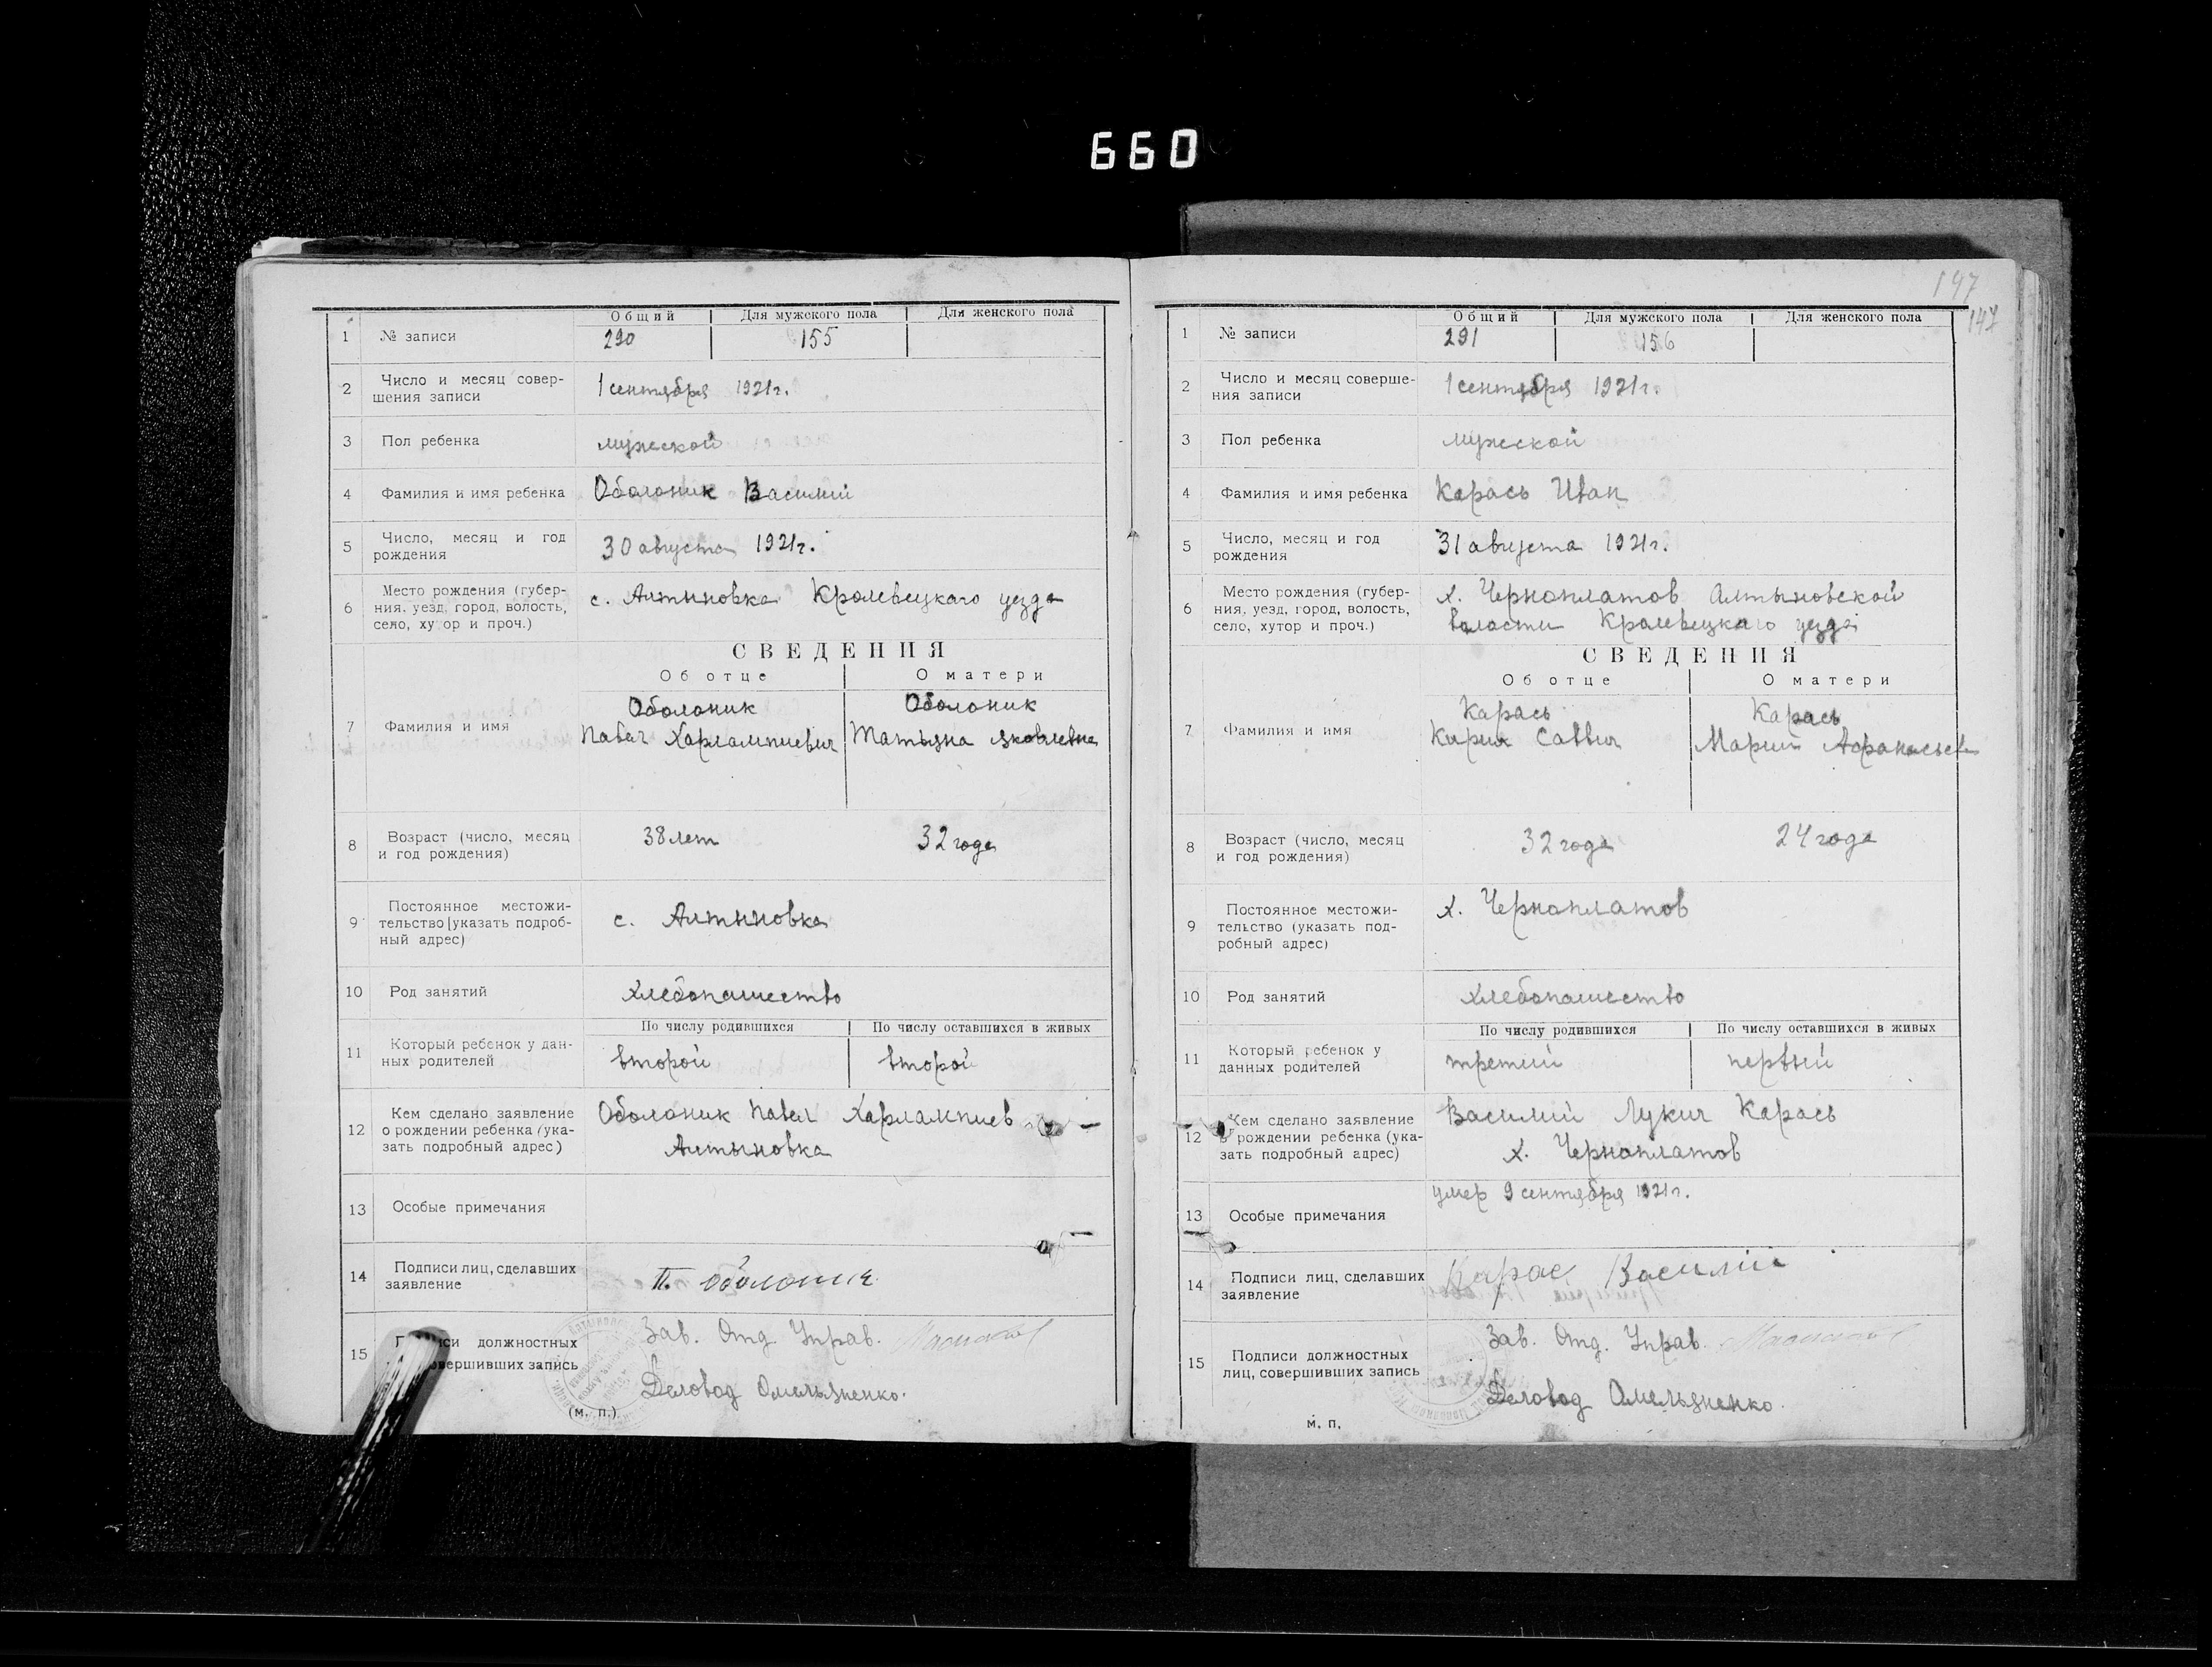 660
Общий Для мужского пола Для женского пола
1 № записи 290 155
2 Число и месяц совер-
шения записи 1 сентября 1921 г.
3 Пол ребенка мужской
4 Фамилия и имя ребенка Оболоник Василий
5 Число, месяц и год
рождения 30 августа 1921 г.
6 Место рождения (губер-
ния, уезд, город, волость,
село, хутор и проч.) с. Алтыновка Кролевецкаго уезда
СВЕДЕНИЯ
Об отце О матери
7 Фамилия и имя Оболоник Оболоник
Павел Харлампиевич Татьяна Яковлевна
8 Возраст (число, месяц
и год рождения) 38 лет 32 года
9 Постоянное местожи-
тельство (указать подроб-
ный адрес) с. Алтыновка
10 Род занятий хлебопашество
По числу родившихся По числу оставшихся в живых
11 Который ребенок у дан-
ных родителей второй второй
12 Кем сделано заявление
о рождении ребенка (ука-
зать подробный адрес) Оболоник Павел Харлампиев
Алтыновка
13 Особые примечания
14 Подписи лиц, сделавших
заявление П. Оболоник
15 должностных
совершивших запись Зав. Отд. Управ.
Деловод Омельяненко.
(м. п.)
147
147
Общий Для мужского пола Для женского пола
1 № записи 291 156
2 Число и месяц соверше-
ния записи 1 сентября 1921 г.
3 Пол ребенка мужской
4 Фамилия и имя ребенка Карась Иван
5 Число, месяц и год
рождения 31 августа 1921 г.
6 Место рождения (губер-
ния, уезд, город, волость,
село, хутор и проч.) х. Черноплатов Алтыновской
волости Кролевецкаго уезда
СВЕДЕНИЯ
Об отце О матери
7 Фамилия и имя Карась Карась
Кирил Саввич Мария Афанасьев
8 Возраст (число, месяц
и год рождения) 32 года 24 года
9 Постоянное местожи-
тельство (указать под-
робный адрес) х. Черноплатов
10 Род занятий хлебопашество
По числу родившихся По числу оставшихся в живых
11 Который ребенок у
данных родителей третий первый
12 Кем сделано заявление
о рождении ребенка (ука-
зать подробный адрес) Василий Лукич Карась
х. Черноплатов
13 Особые примечания умер 9 сентября 1921 г.
14 Подписи лиц, сделавших
заявление Карас Василій
15 Подписи должностных
лиц, совершивших запись Зав. Отд. Управ.
Деловод Омельяненко.
м. п.